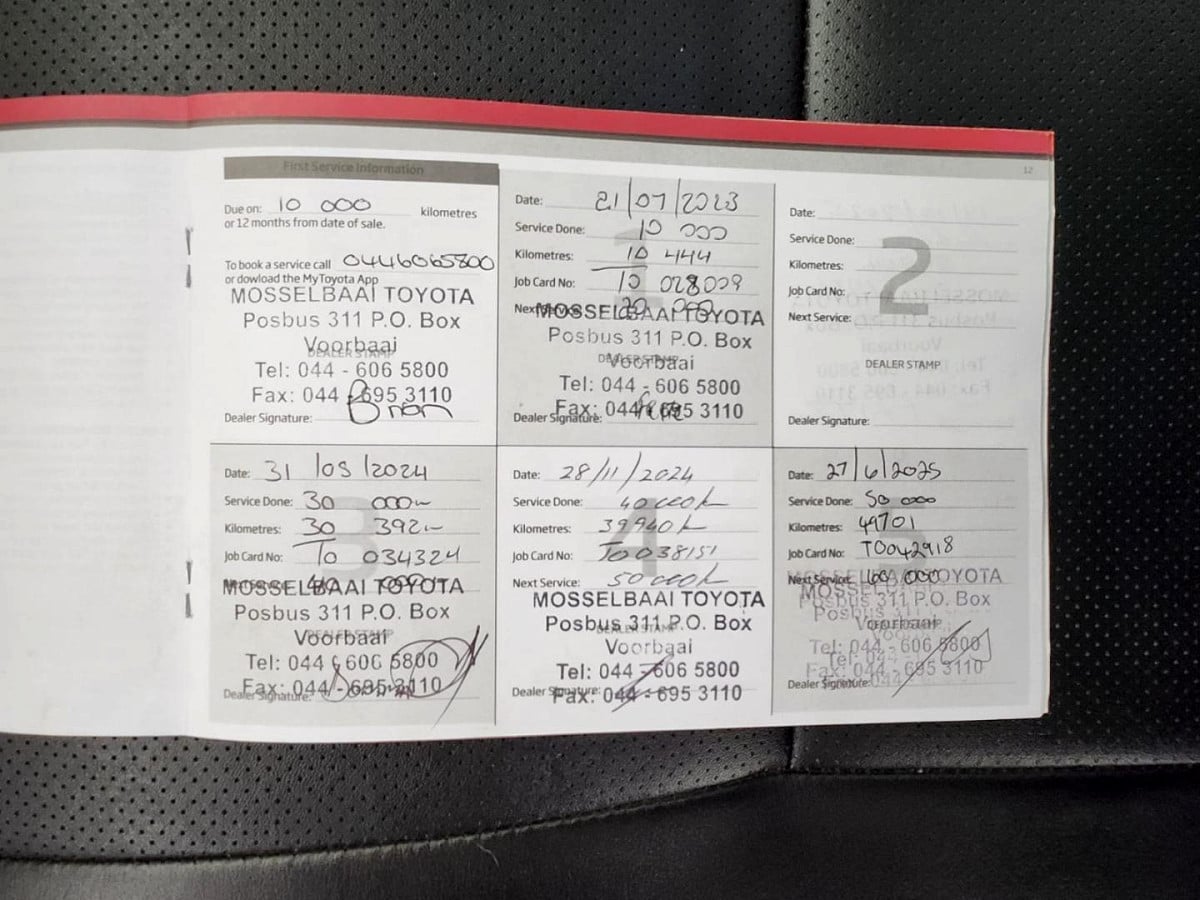 First Service Information
Due on: 10 000 kilometres
or 12 months from date of sale.
To book a service call 0446065800
or dowload the MyToyota App
MOSSELBAAI TOYOTA
Posbus 311 P.O. Box
Voorbaai
DEALER STAMP
Tel: 044 - 606 5800
Fax: 044 - 695 3110
Dealer Signature:
1
Date: 21/07/2023
Service Done: 10 000
Kilometres: 10 444
Job Card No: TO 028009
Next Service: 20 000
MOSSELBAAI TOYOTA
Posbus 311 P.O. Box
DEALER STAMP
Voorbaai
Tel: 044 - 606 5800
Fax: 044 - 695 3110
Dealer Signature:
12
2
Date:
Service Done:
Kilometres:
Job Card No:
Next Service:
DEALER STAMP
Dealer Signature:
3
Date: 31/05/2024
Service Done: 30 000
Kilometres: 30 392
Job Card No: TO 034324
MOSSELBAAI TOYOTA
Posbus 311 P.O. Box
Voorbaai
Tel: 044 - 606 5800
Fax: 044 - 695 3110
Dealer Signature:
4
Date: 28/11/2024
Service Done: 40000k
Kilometres: 39940k
Job Card No: TO038151
Next Service: 50000k
MOSSELBAAI TOYOTA
Posbus 311 P.O. Box
DEALER STAMP
Voorbaai
Tel: 044 - 606 5800
Fax: 044 - 695 3110
Dealer Signature:
5
Date: 27/6/2025
Service Done: 50 000
Kilometres: 49701
Job Card No: TO042918
Next Service: 60 000
MOSSELBAAI TOYOTA
Posbus 311 P.O. Box
Voorbaai
Tel: 044 - 606 5800
Fax: 044 - 695 3110
Dealer Signature: